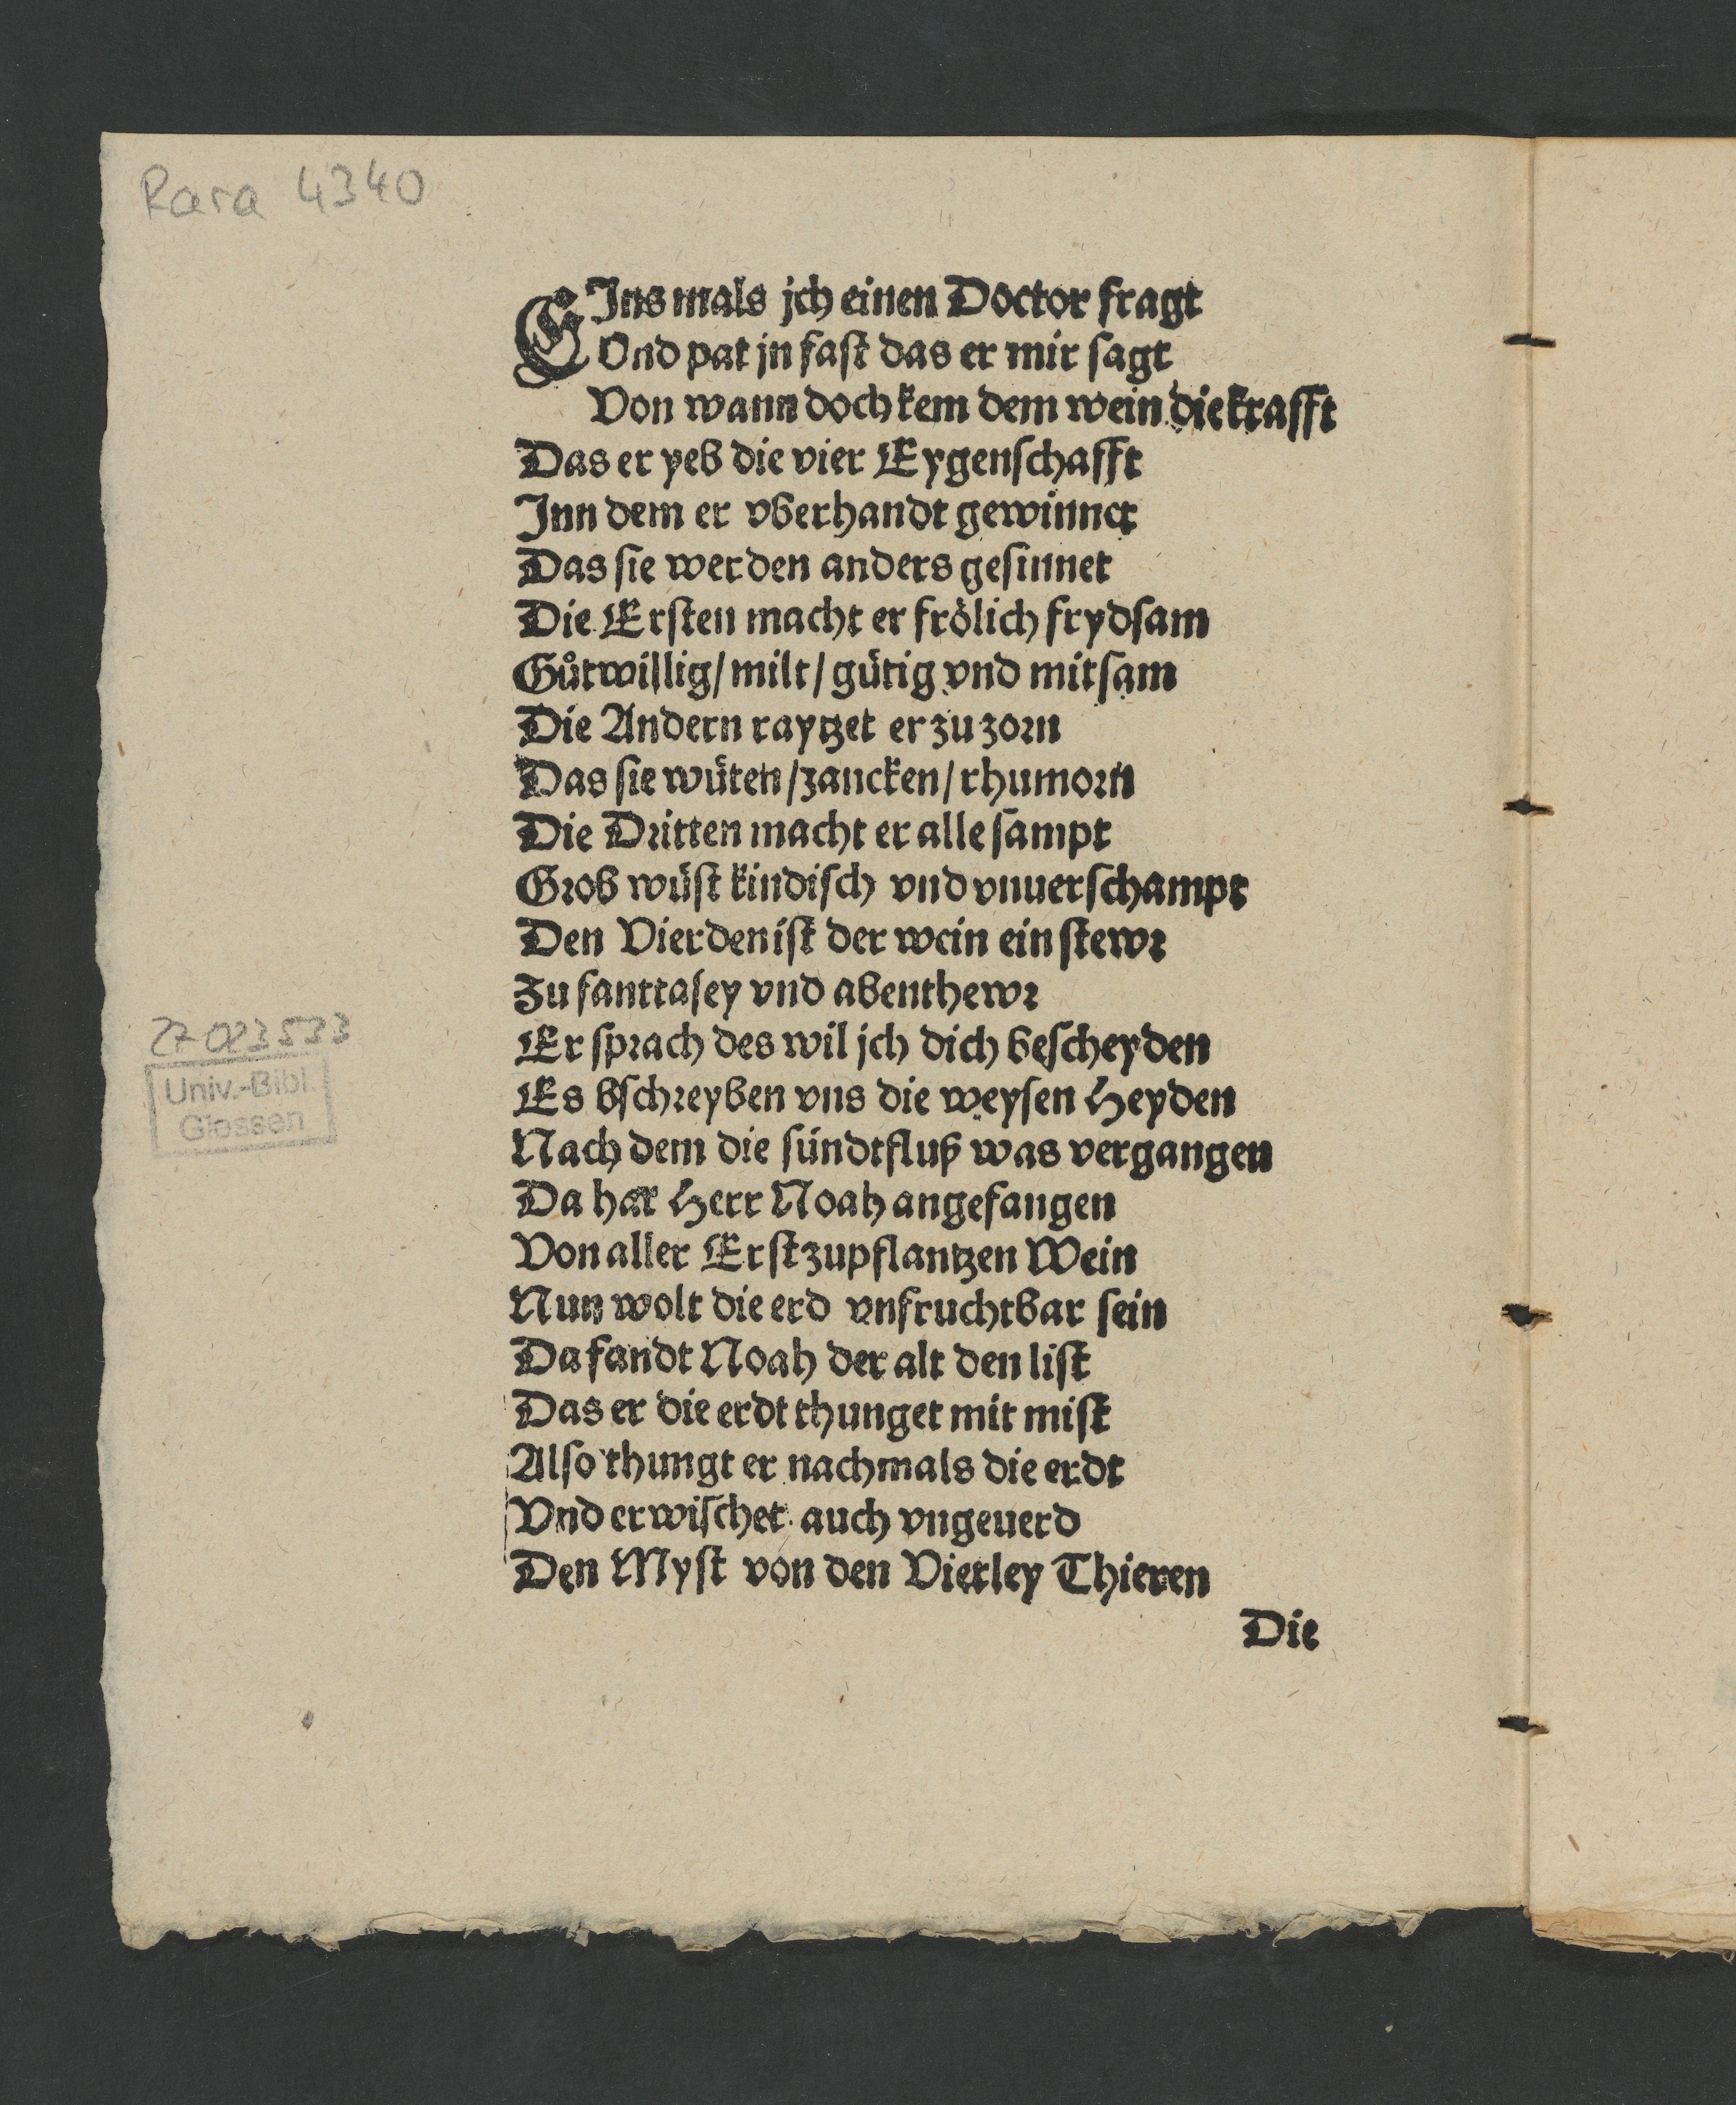 Rara 4340
EJns mals jch einen Doctor fragt
Vnd pat jn fast das er mir sagt
Von wann doch kem dem wein die krafft
Das er yeb die vier Eygenschafft
Jnn dem er vberhandt gewinnet
Das sie werden anders gesinnet
Die Ersten macht er frölich frydsam
Gůtwillig / milt / gütig vnd mitsam
Die Andern raytzet er zu zorn
Das sie wüten / zancken / rhumorn
Die Dritten macht er alle sampt
Grob wüst kindisch vnd vnuerschampt
Den Vierden ist der wein ein stewr
Zu fanttasey vnd abenthewr
Er sprach des wil jch dich bescheyden
Es bschreyben vns die weysen Heyden
Nach dem die sündtfluß was vergangen
Da hat Herr Noah angefangen
Von aller Erst zupflantzen Wein
Nun wolt die erd vnfruchtbar sein
Da fandt Noah der alt den list
Das er die erdt thunget mit mist
Also thungt er nachmals die erdt
Vnd erwischet auch vngeuerd
Den Myst von den Vierley Thieren
Die
27 023 533
Univ.-Bibl.
Giessen